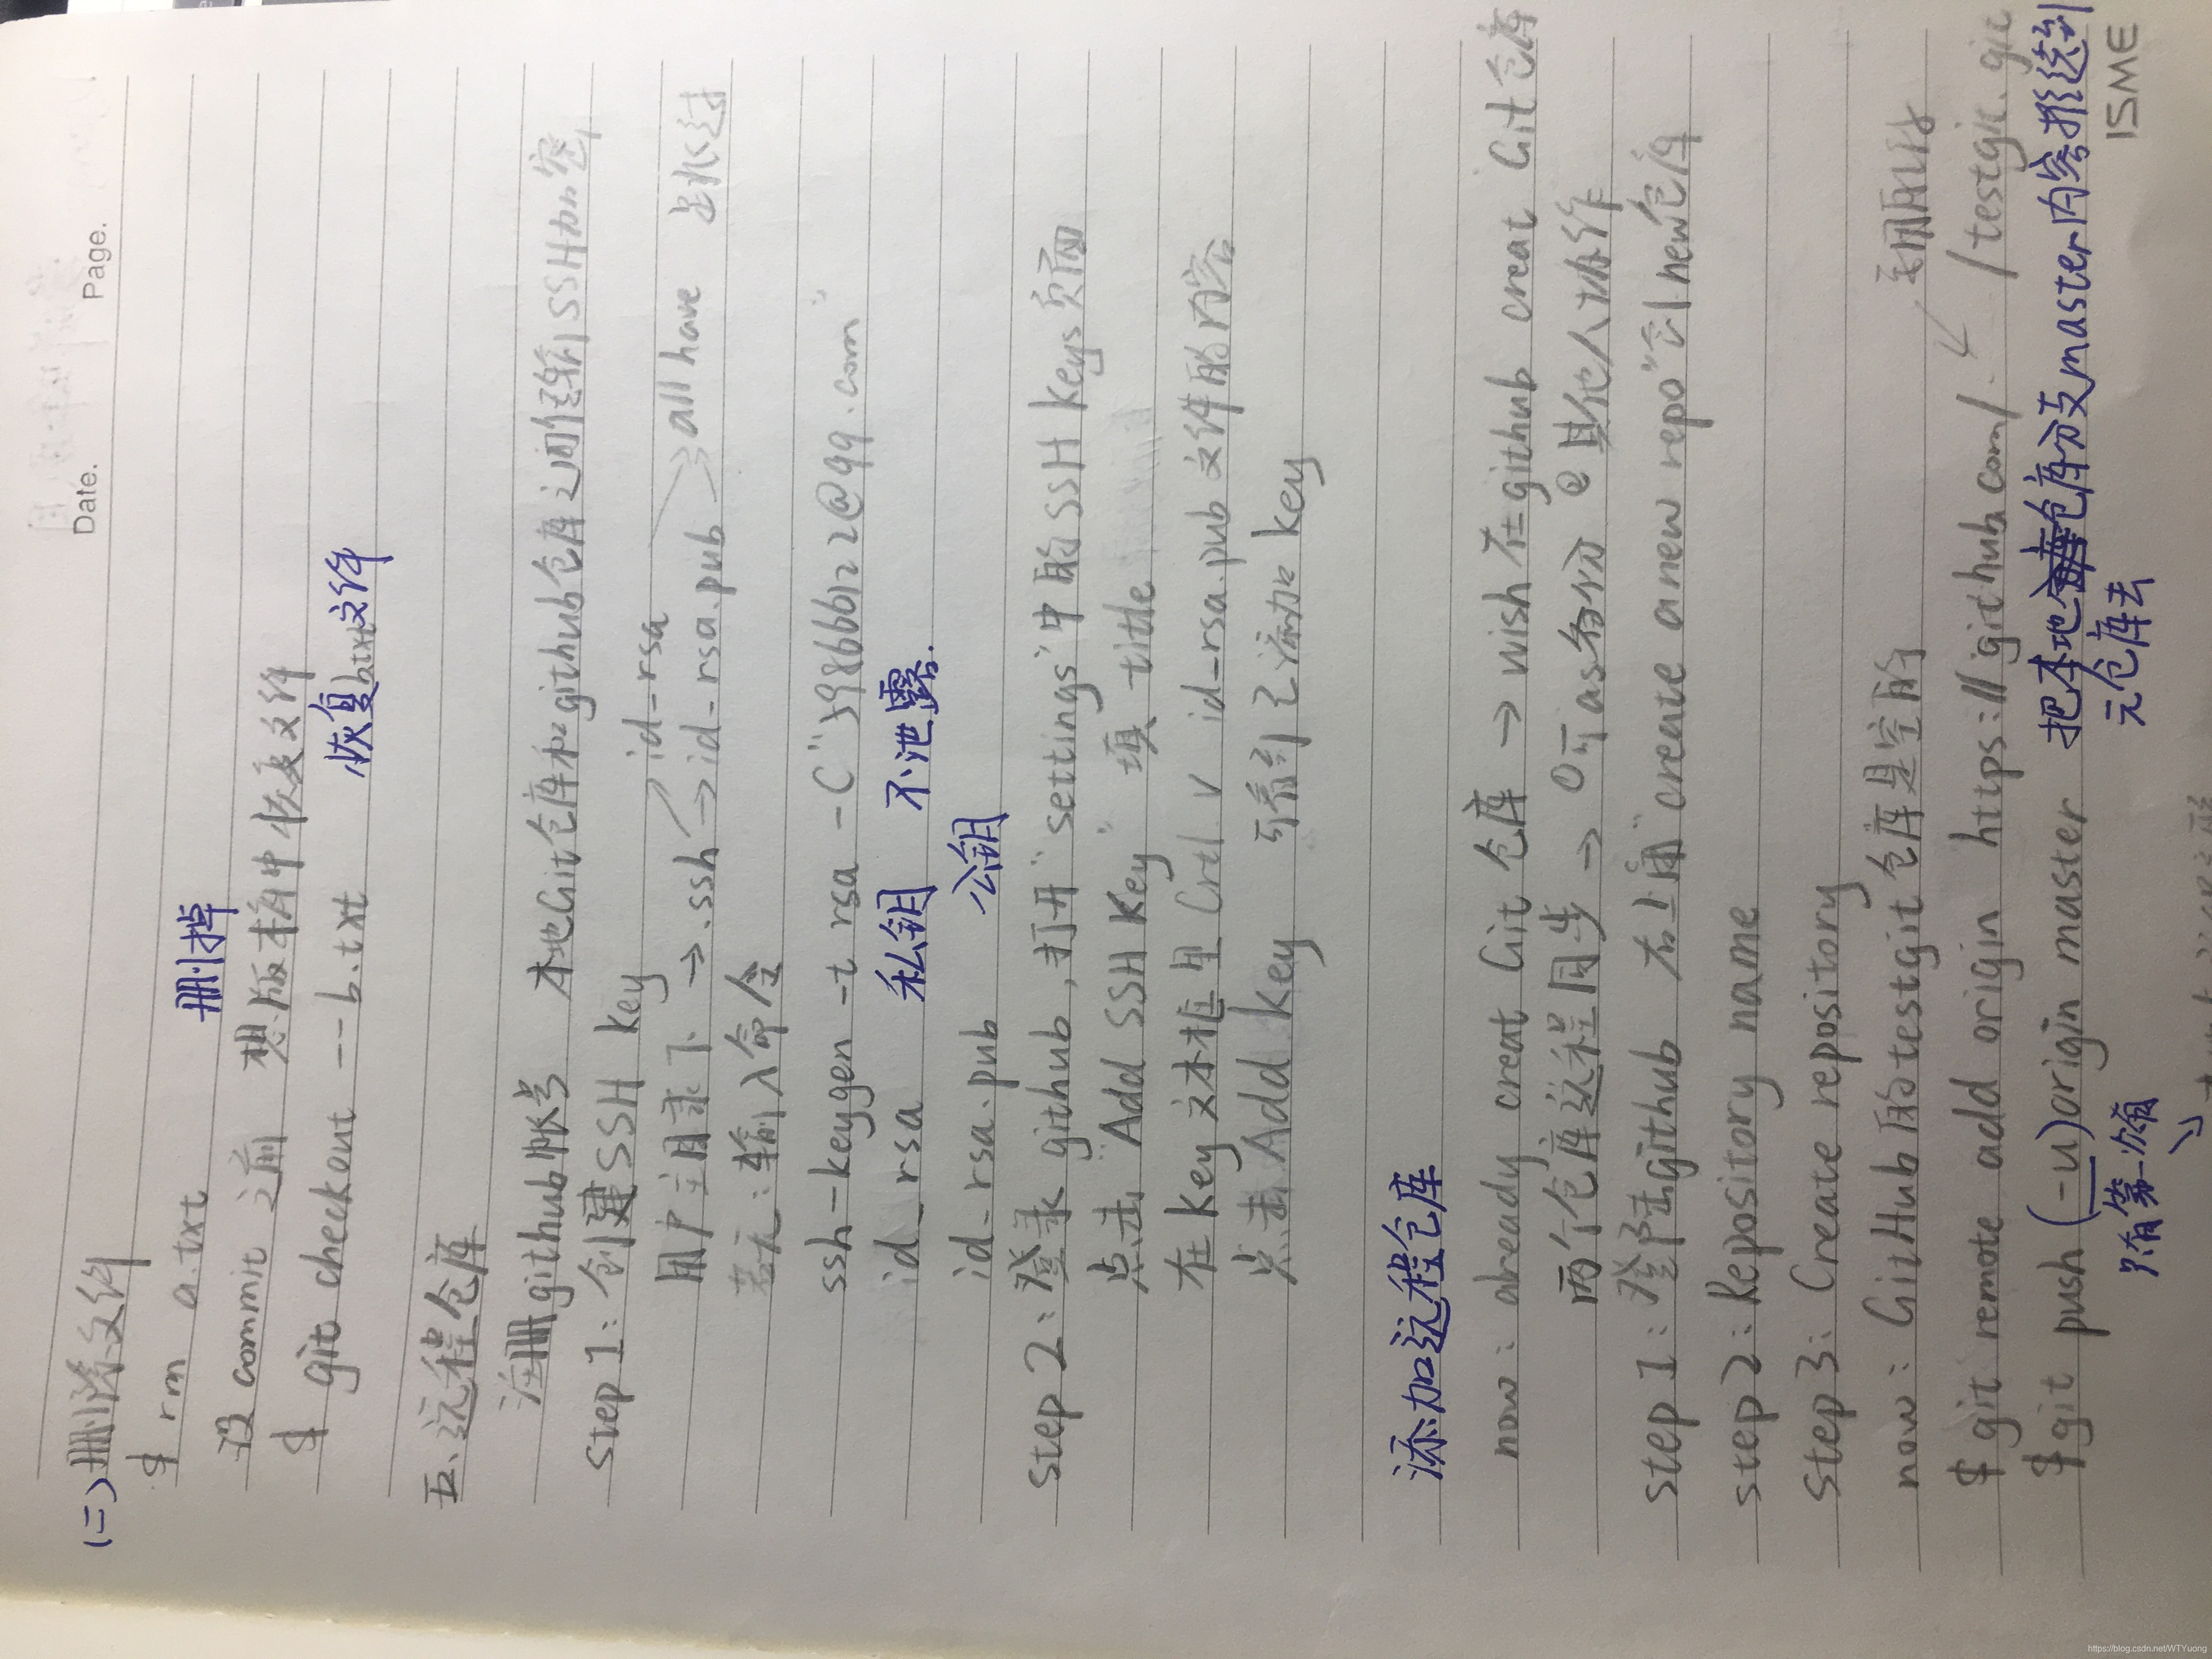 Date. Page.
(二)删除文件
$ rm a.txt 删掉
没 commit 之前 想版本库中恢复文件
$ git checkout -- b.txt 恢复b.txt文件
五、远程仓库
注册github账号 本地Git仓库和github仓库之间传输SSH加密
Step 1: 创建SSH key
用户主目录下 → .ssh → id_rsa
→ id_rsa.pub → all have 跳过
若无: 输入命令
ssh-keygen -t rsa -C "
id_rsa 私钥 不泄露.
id_rsa.pub 公钥
Step 2: 登录 github, 打开"settings"中的SSH keys页面
点击"Add SSH Key" 填 title
在 key 文本框里 Crtl V id_rsa.pub 文件的内容
点击 Add key 可看到已添加 key
添加远程仓库
now: aready creat Git 仓库 → wish 在 github creat Git 仓库
两个仓库远程同步 → ①可as备份 ②其他人协作
Step 1: 登陆github 右上角"create a new repo"创new仓库
step 2: Repository name
Step 3: Create repository
now: GitHub的testgit仓库是空的
用户名
$ git remote add origin https://github.com/ /testgit.git
$ git push (-u) origin master 把本地仓库分支master内容推送到
只有第一次有 元仓库去
ISME
https://blog.csdn.net/WTYuong